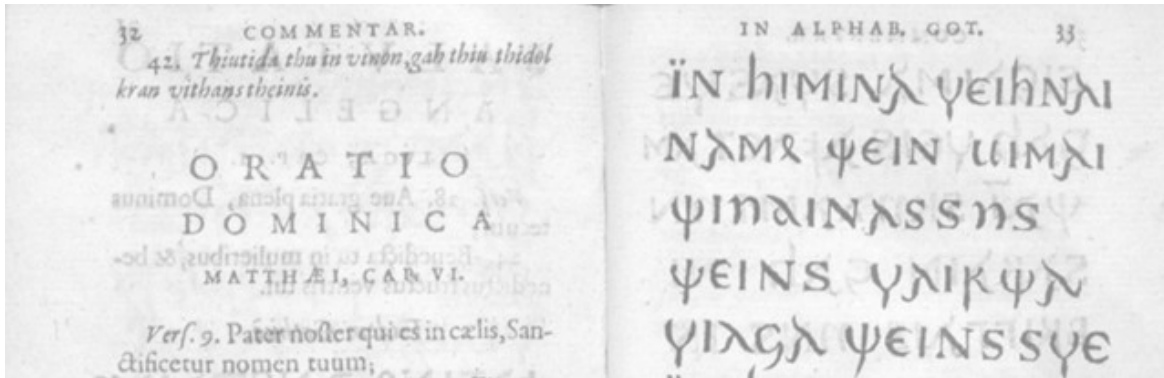 32 COMMENTAR.
42. Thiutida thu in vinon, gah thiu thidol
kran vithans theinis.
ORATIO
DOMINICA
MATTHÆI, CAP. VI.
Verſ. 9. Pater noſter qui es in cælis, San-
ctificetur nomen tuum;
IN ALPHAB. GOT. 33
𐌹̈𐌽 𐌷𐌹𐌼𐌹𐌽𐌰 𐍅𐌴𐌹𐌷𐌽𐌰𐌹
𐌽𐌰𐌼𐍉 𐌸𐌴𐌹𐌽 𐌵𐌹𐌼𐌰𐌹
𐌸𐌹𐌿𐌳𐌹𐌽𐌰𐍃𐍃𐌿𐍃
𐌸𐌴𐌹𐌽𐍃 𐍅𐌰𐌹𐍂𐌸𐌰
𐍅𐌹𐌻𐌾𐌰 𐌸𐌴𐌹𐌽𐍃 𐍃𐍅𐌴